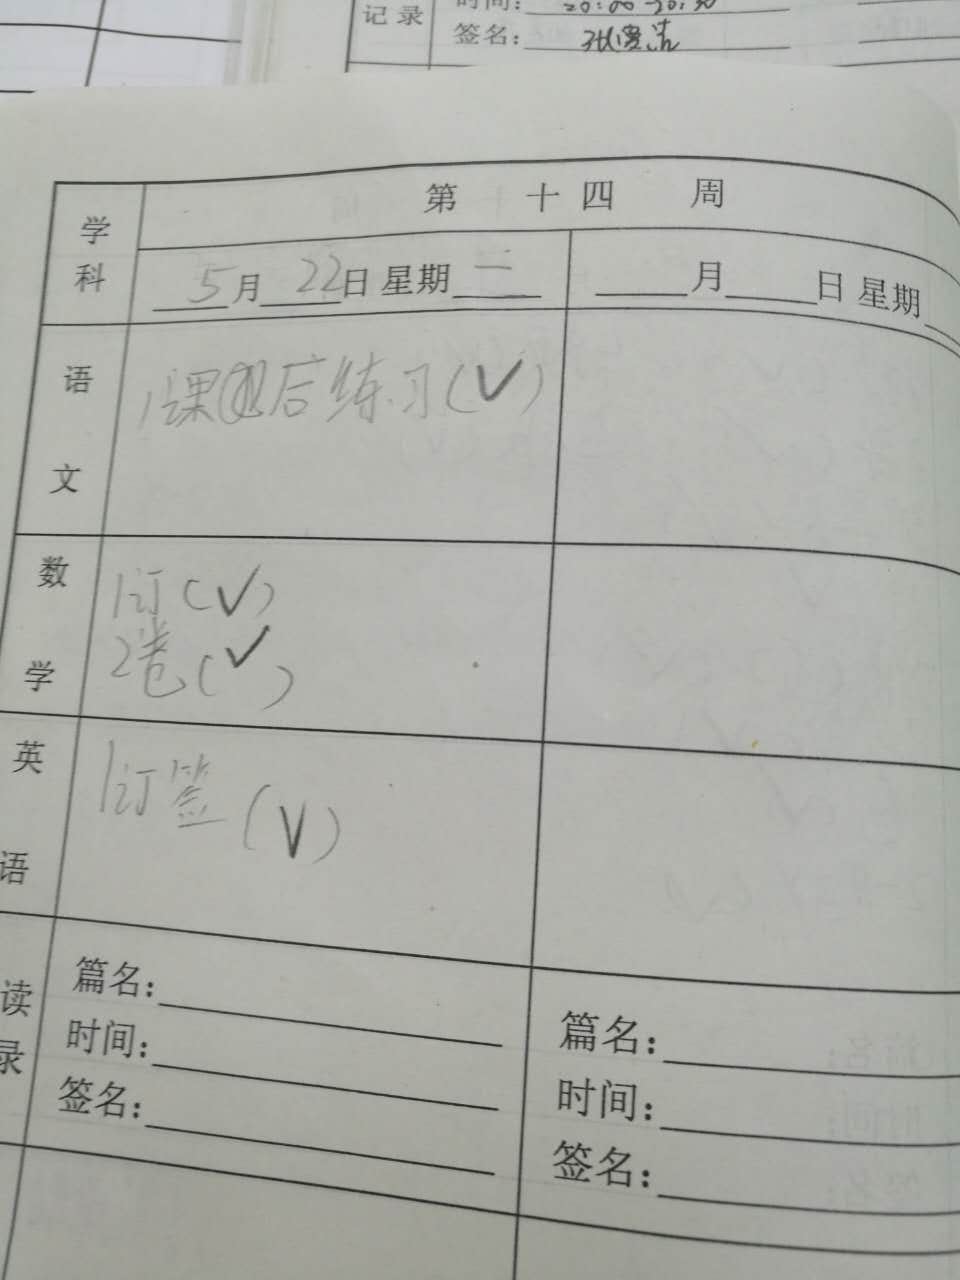 记录
时间:
签名:
学科
第 十四 周
5月22日 星期二
月 日 星期
语文
1课后练习(✓)
数学
1订(✓)
2卷(✓)
英语
1订签(✓)
读
录
篇名:
时间:
签名:
篇名:
时间:
签名: